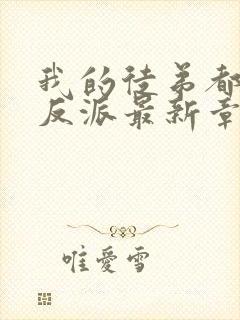 我的徒弟都
反派最新章
唯愛雪